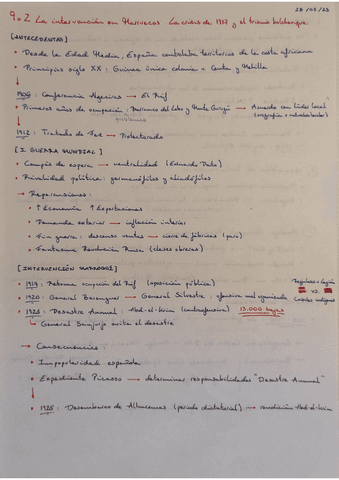 28/02/23
9.2 La intervención en Marruecos. La crisis de 1917 y el trienio bolchevique
[ANTECEDENTES]
• Desde la Edad Media, España controlaba territorios de la costa africana
• Principios siglo XX: Guinea única colonia + Ceuta y Melilla
• 1906: Conferencia Algeciras → El Rif
• Primeros años de ocupación: Barranco del Lobo y Monte Gurugú → Acuerdo con líderes local
problemas
• 1912: Tratado de Fez → Protectorado
[I GUERRA MUNDIAL]
• Compás de espera → neutralidad (Eduardo Dato)
• Rivalidad política: germanófilos y aliadófilos
→ Repercusiones:
• ↑ Economía ↑ Exportaciones
• Demanda exterior → inflación interior
• Fin guerra: descenso ventas → cierre de fábricas (paro)
• Fantasma Revolución Rusa (clases obreras)
[INTERVENCIÓN MARROQUÍ]
• 1919: Retoma ocupación del Rif (oposición pública)
• 1920: General Berenguer → General Silvestre: ofensiva mal organizada
Regulares + Legión
vs.
Cabilas indígenas
• 1921: Desastre Annual: Abd-el-Krim (contraofensiva) 13.000 bajas
↳ General Sanjurjo evita el desastre
→ Consecuencias:
• Impopularidad española
• Expediente Picasso → determinar responsabilidades "Desastre Annual"
• 1925: Desembarco de Alhucemas (periodo dictatorial) → rendición Abd-el-Krim